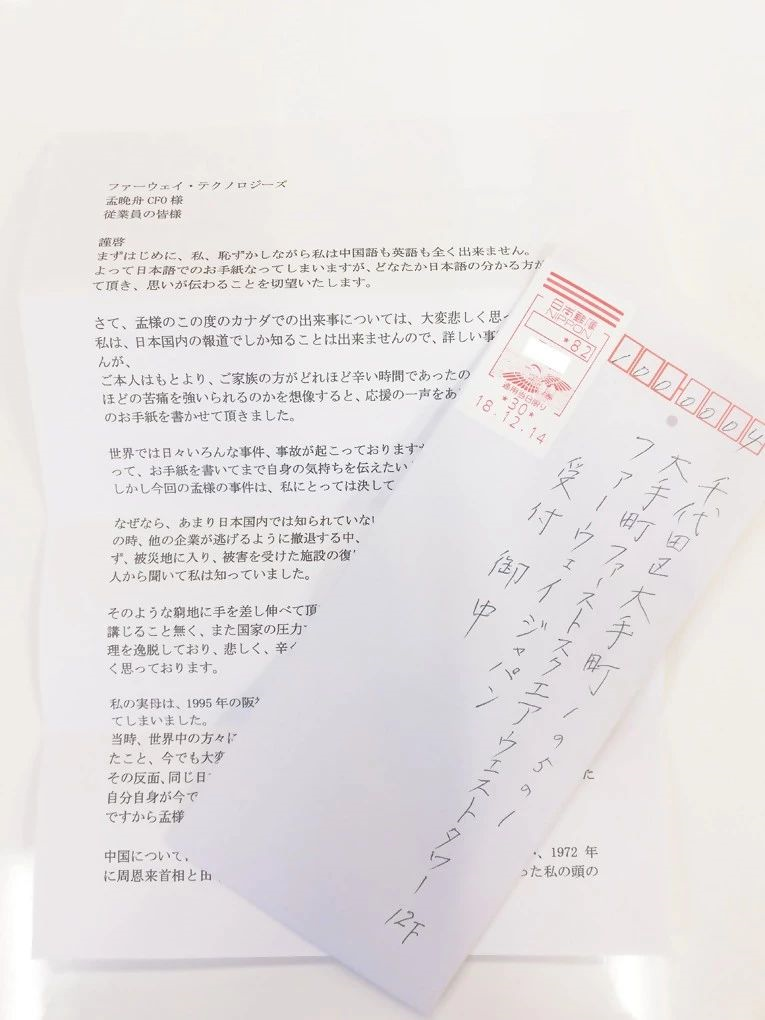 ファーウェイ・テクノロジーズ
孟晩舟 CFO 様
従業員の皆様
謹啓
まずはじめに、私、恥ずかしながら私は中国語も英語も全く出来ません。
よって日本語でのお手紙なってしまいますが、どなたか日本語の分かる方が
て頂き、思いが伝わることを切望いたします。
さて、孟様のこの度のカナダでの出来事については、大変悲しく思っ
私は、日本国内の報道でしか知ることは出来ませんので、詳しい事
んが、
ご本人はもとより、ご家族の方がどれほど辛い時間であったの
ほどの苦痛を強いられるのかを想像すると、応援の一声をあ
のお手紙を書かせて頂きました。
世界では日々いろんな事件、事故が起こっております
って、お手紙を書いてまで自身の気持ちを伝えたい
しかし今回の孟様の事件は、私にとっては決して
なぜなら、あまり日本国内では知られていな
の時、他の企業が逃げるように撤退する中、
ず、被災地に入り、被害を受けた施設の復
人から聞いて私は知っていました。
そのような窮地に手を差し伸べて頂
講じること無く、また国家の圧力
理を逸脱しており、悲しく、辛く
く思っております。
私の実母は、1995 年の阪
てしまいました。
当時、世界中の方々に
たこと、今でも大変
その反面、同じ日
に
自分自身が今で
ですから孟様
中国について、
、1972 年
に周恩来首相と田
った私の頭の
日本郵便
NIPPON
*82
適用当日限り
*30*
18.12.14
1000004
千代田区大手町1951
大手町ファーストスクエアウエストタワー 12F
ファーウェイジャパン
受付 御中